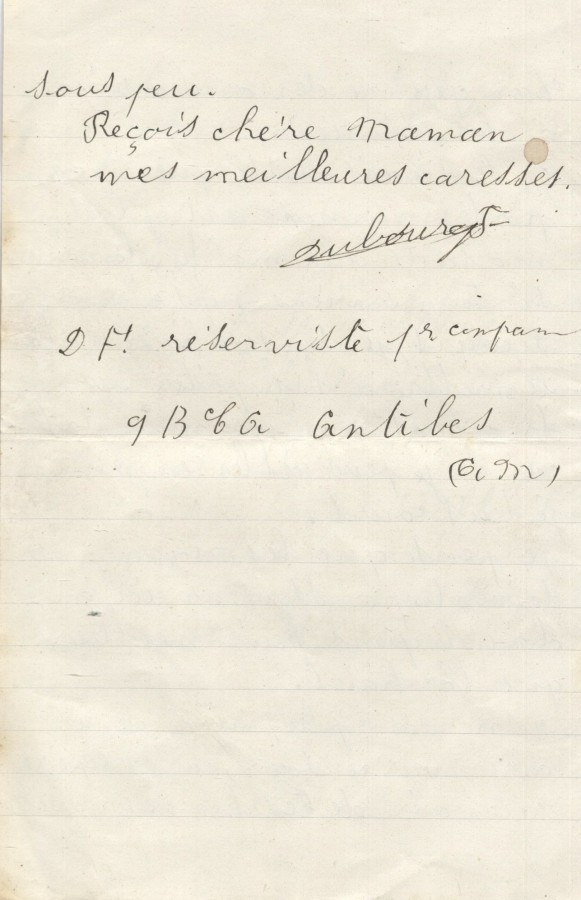 sous peu.
Reçois chère Maman
mes meilleures caresses.
Dubourget
D Ft. réserviste 1re
9 Bcca Antibes
(A. M)